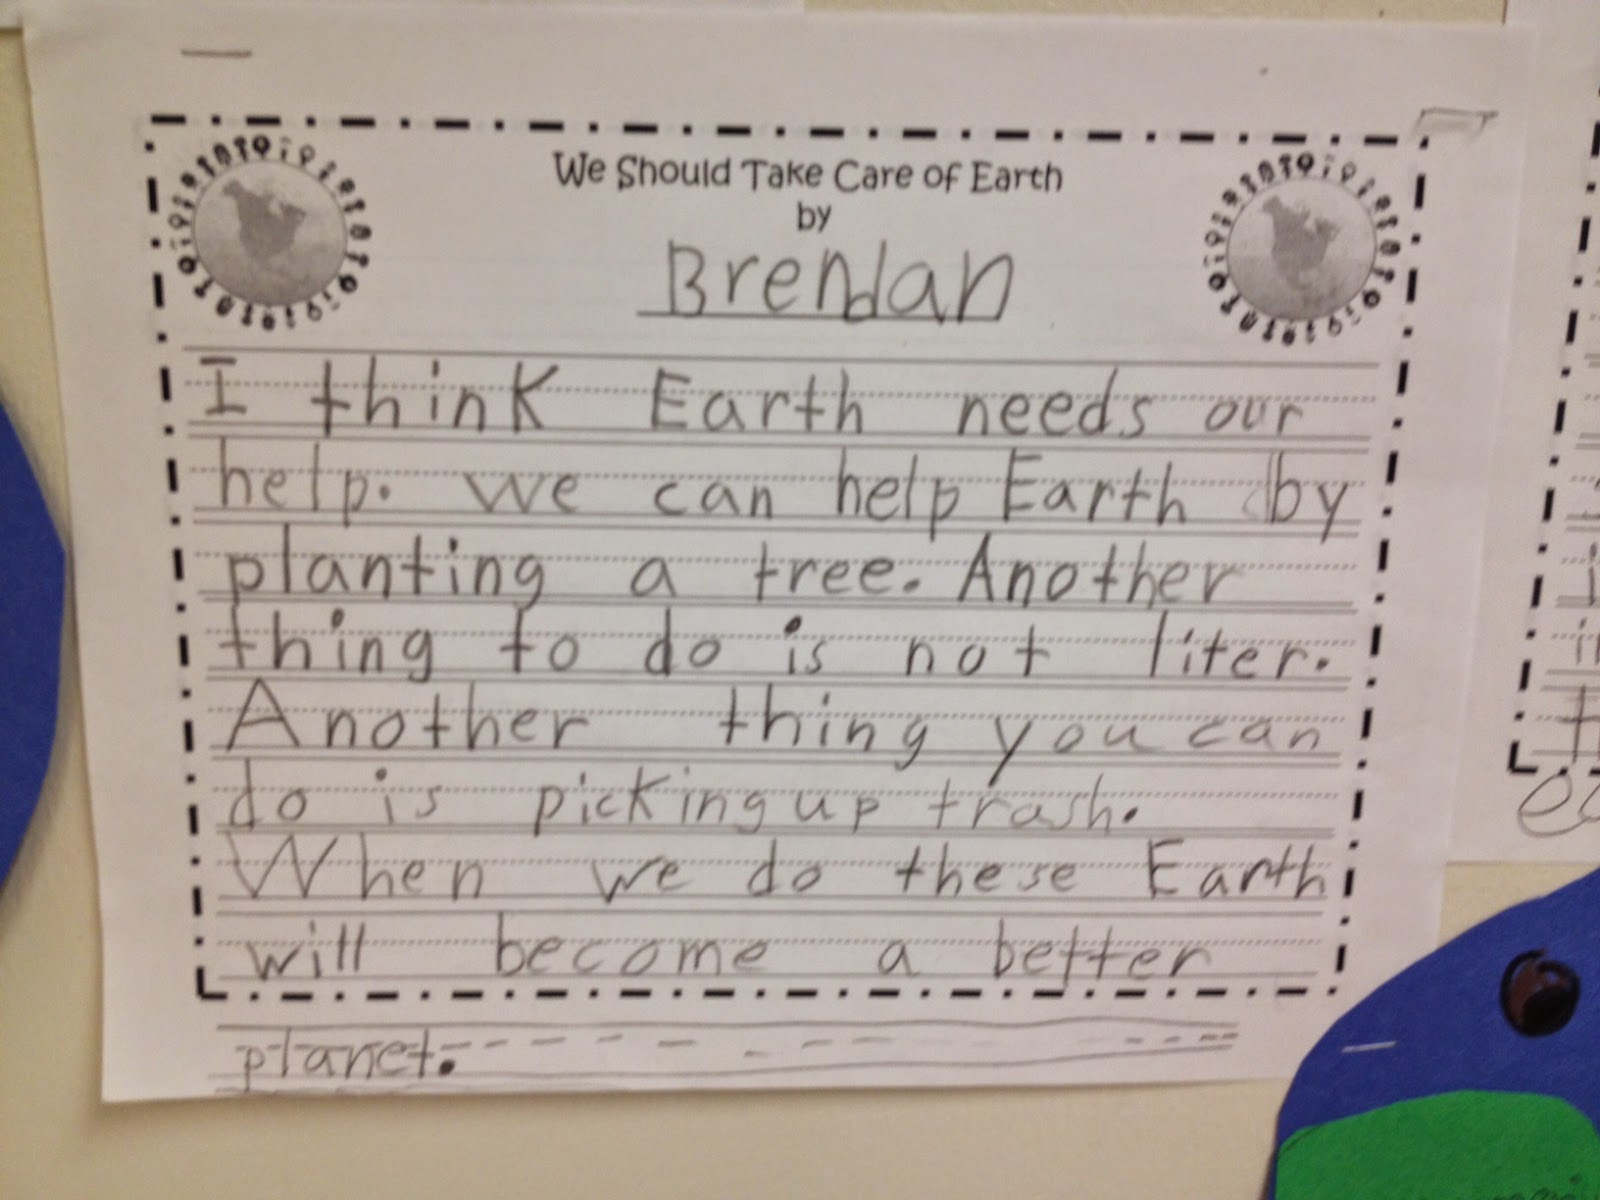 We Should Take Care of Earth
by
Brendan
I think Earth needs our
help. We can help Earth by
planting a tree. Another
thing to do is not liter.
Another thing you can
do is picking up trash.
When we do these Earth
will become a better
planet.